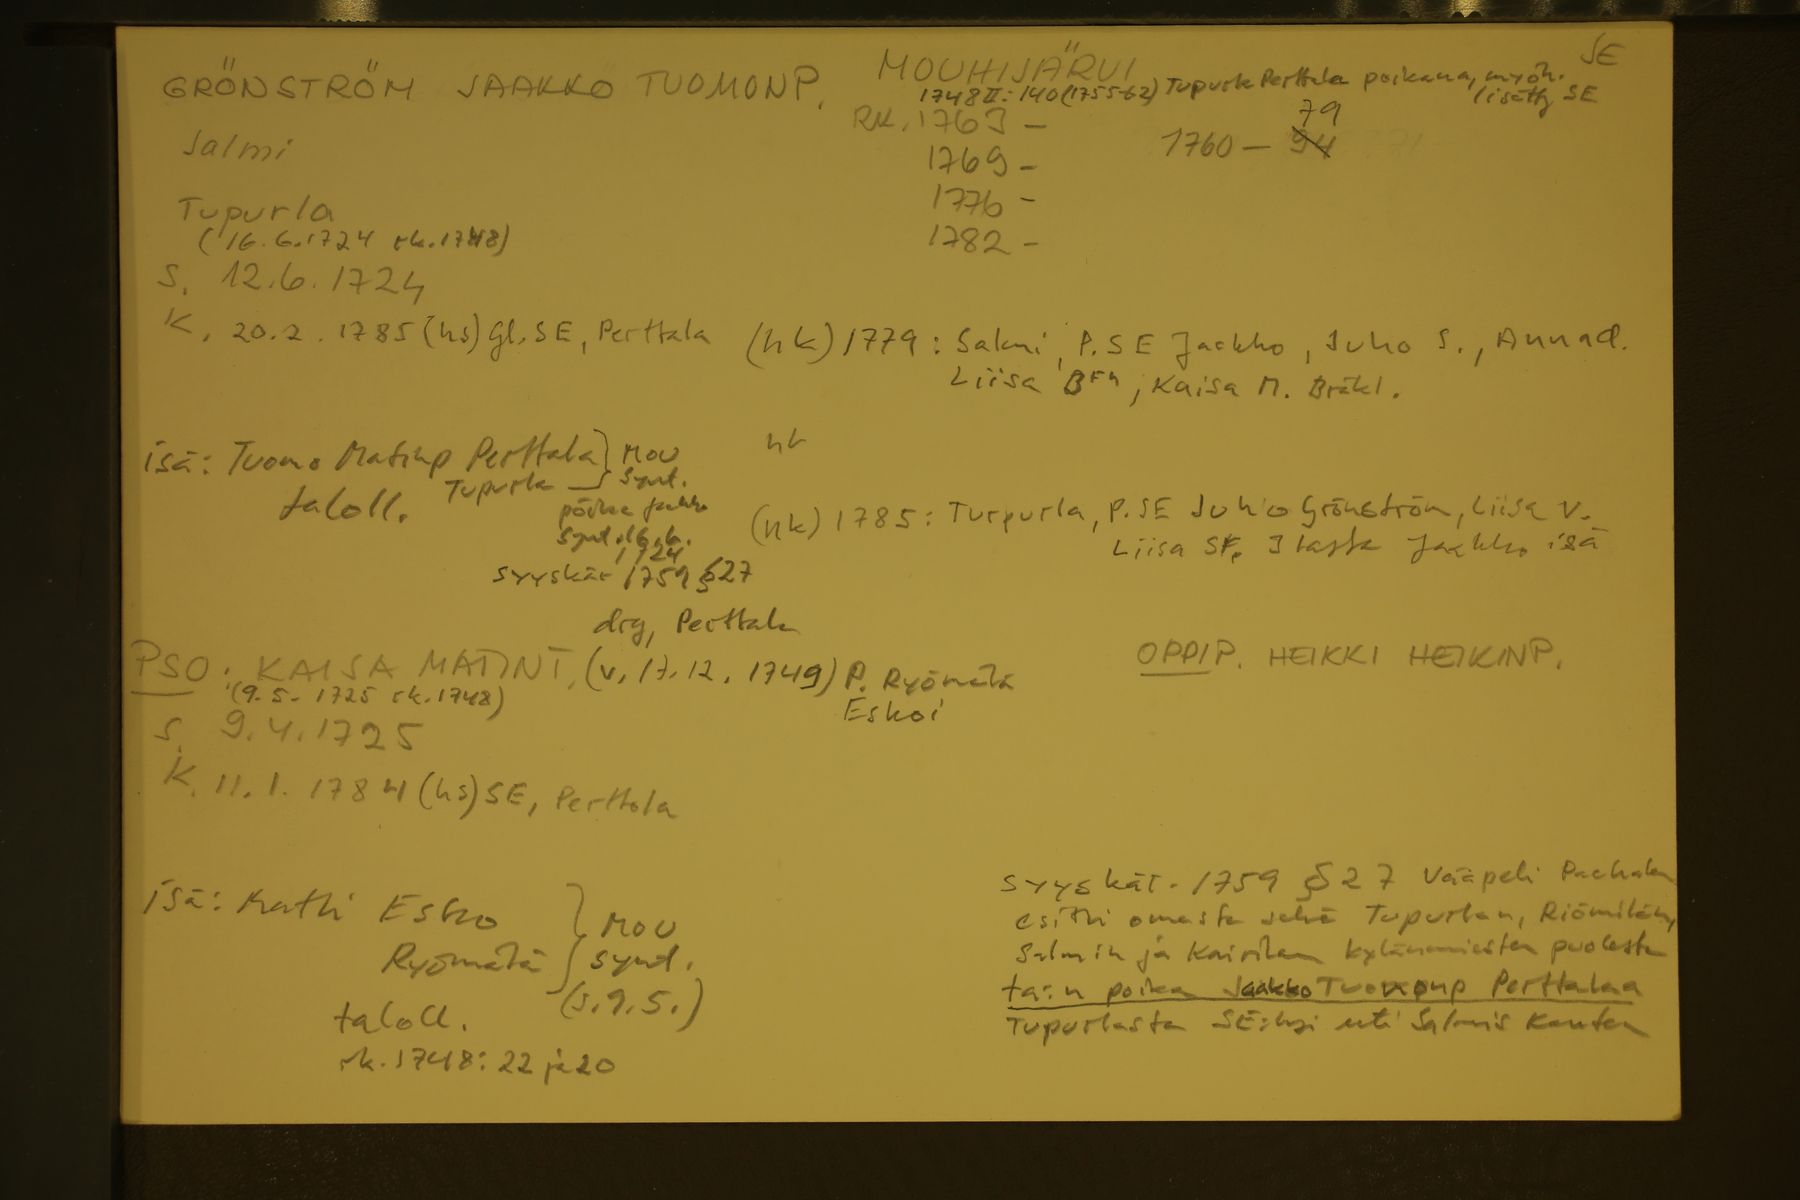 GRÖNSTRÖM JAAKKO TUOMONP.
MOUHIJÄRVI
SE
1748 II: 140 (1755-62) Tupurla Perttala poikana, myöh.
lisätty SE
RK. 1763 –
1769 –
1776 –
1782 –
1760 – 94
79
Salmi
Tupurla
(16.6.1724 rk. 1748)
S. 12.6.1724
K. 20.2.1785 (hs) Gl. SE, Perttala
(hk) 1779: Salmi, P. SE Jaakko, Juho S., Anna d.
Liisa, Kaisa M. Bräkl.
isä: Tuomo Matinp Perttala
Tupurla
taloll.
MOU
synt.
poika Jaakko
synt. 16.6.
1724
syyskär 1759 § 27
drg, Perttala
hk
(hk) 1785: Turpurla, P. SE Juho Grönström, Liisa V.
Liisa Jaakko isä
PSO. KAISA MATINT. (v. 17.12.1749) P. Ryömälä
Eskoi
(9.5.1725 rk. 1748)
S. 9.4.1725
K. 11.1.1784 (hs) SE, Perttola
OPPIP. HEIKKI HEIKINP.
isä: Matti Esko
Ryömälä
MOU
synt.
(s. 9.5.)
taloll.
rk. 1748: 22 ja 20
syyskär. 1759 § 27 Vääpeli
esitti omasta sekä Tupurlan, Riömilän,
Salmin ja Kairilan kylänmiesten puolesta
ta:n poika Jaakko Tuomonp Perttalaa
Tupurlasta SE:ksi